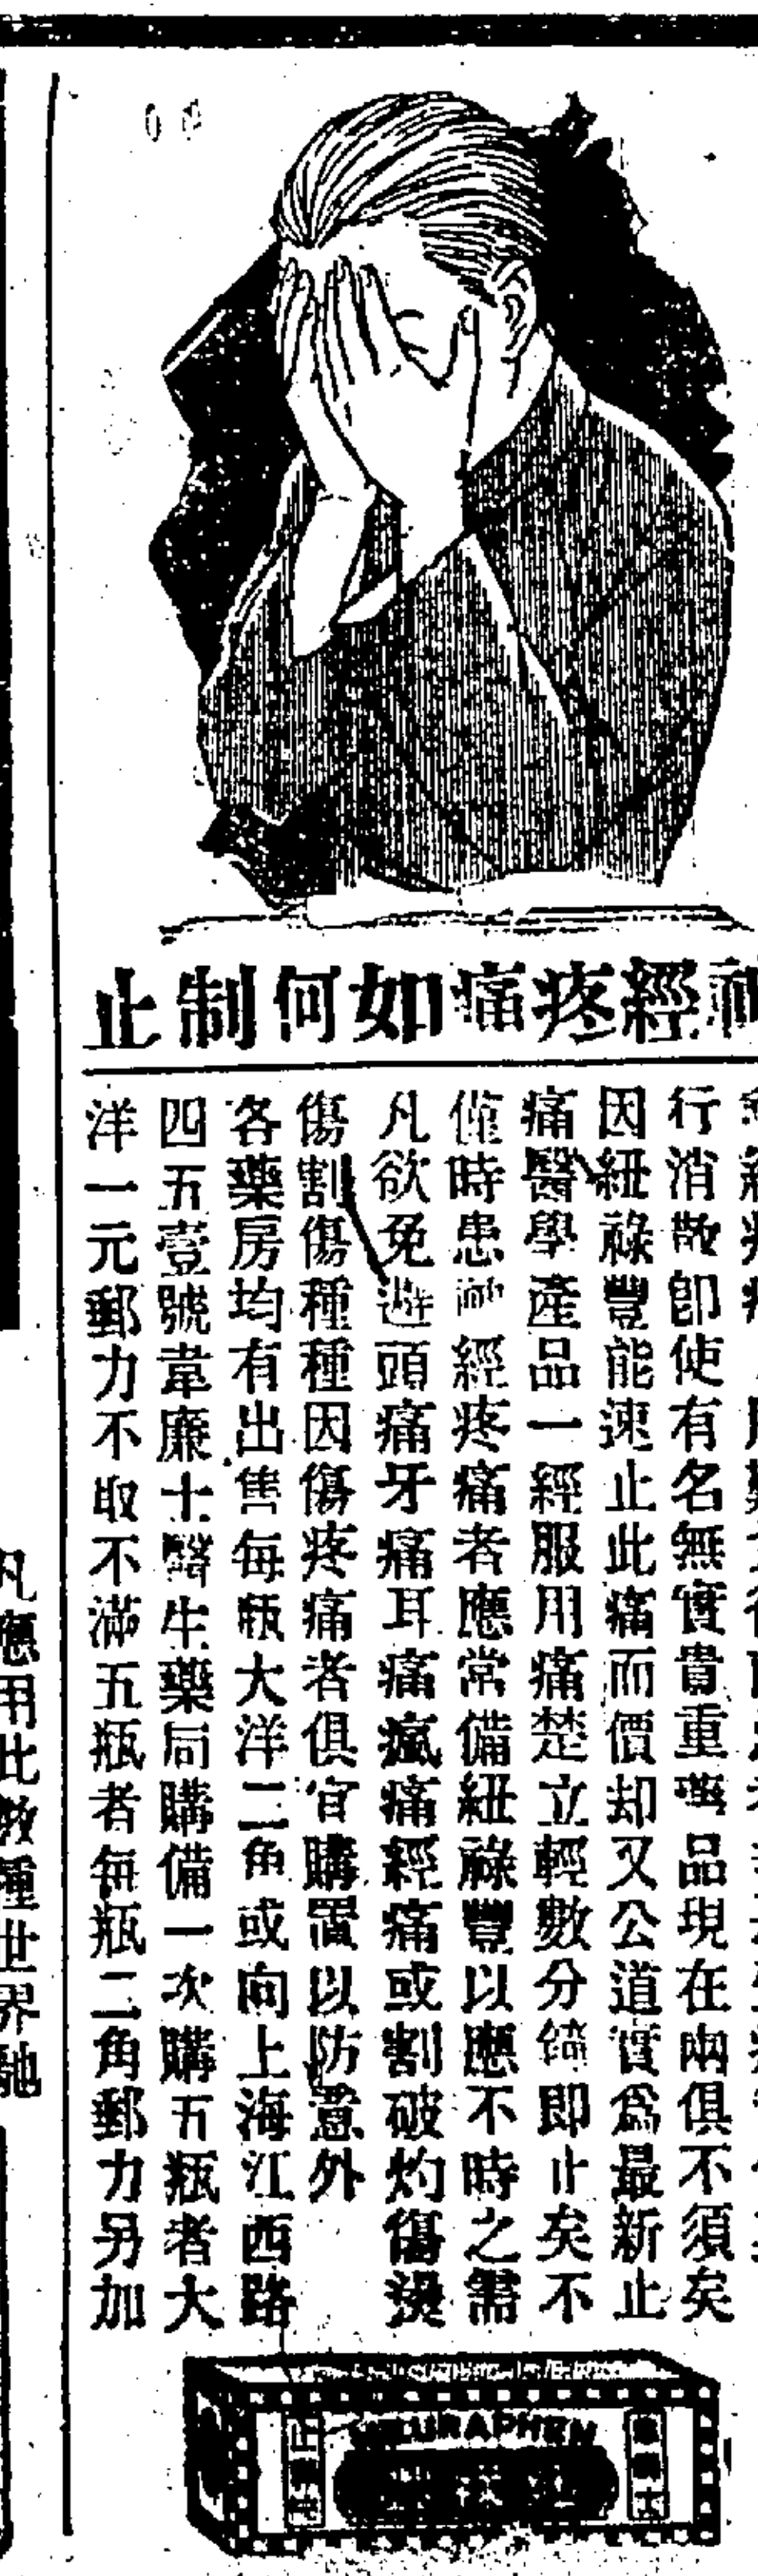 神經疼痛如何制止
行消散即使有名無實貴重藥品現在兩俱不須矣
因紐祿豐能速止此痛而價却又公道實爲最新止
痛醫學產品一經服用痛楚立輕數分鐘即止矣不
僅時患神經疼痛者應常備紐祿豐以應不時之需
凡欲免避頭痛牙痛耳痛痛經痛或割破灼傷燙
傷割傷種種因傷疼痛者俱宜購置以防意外
各藥房均有出售每瓶大洋二角或向上海江西路
四五壹號韋廉士醫生藥局購備一次購五瓶者大
洋一元郵力不取不滿五瓶者每瓶二角郵力另加
NEURAPHEN
凡應用此數種世界馳